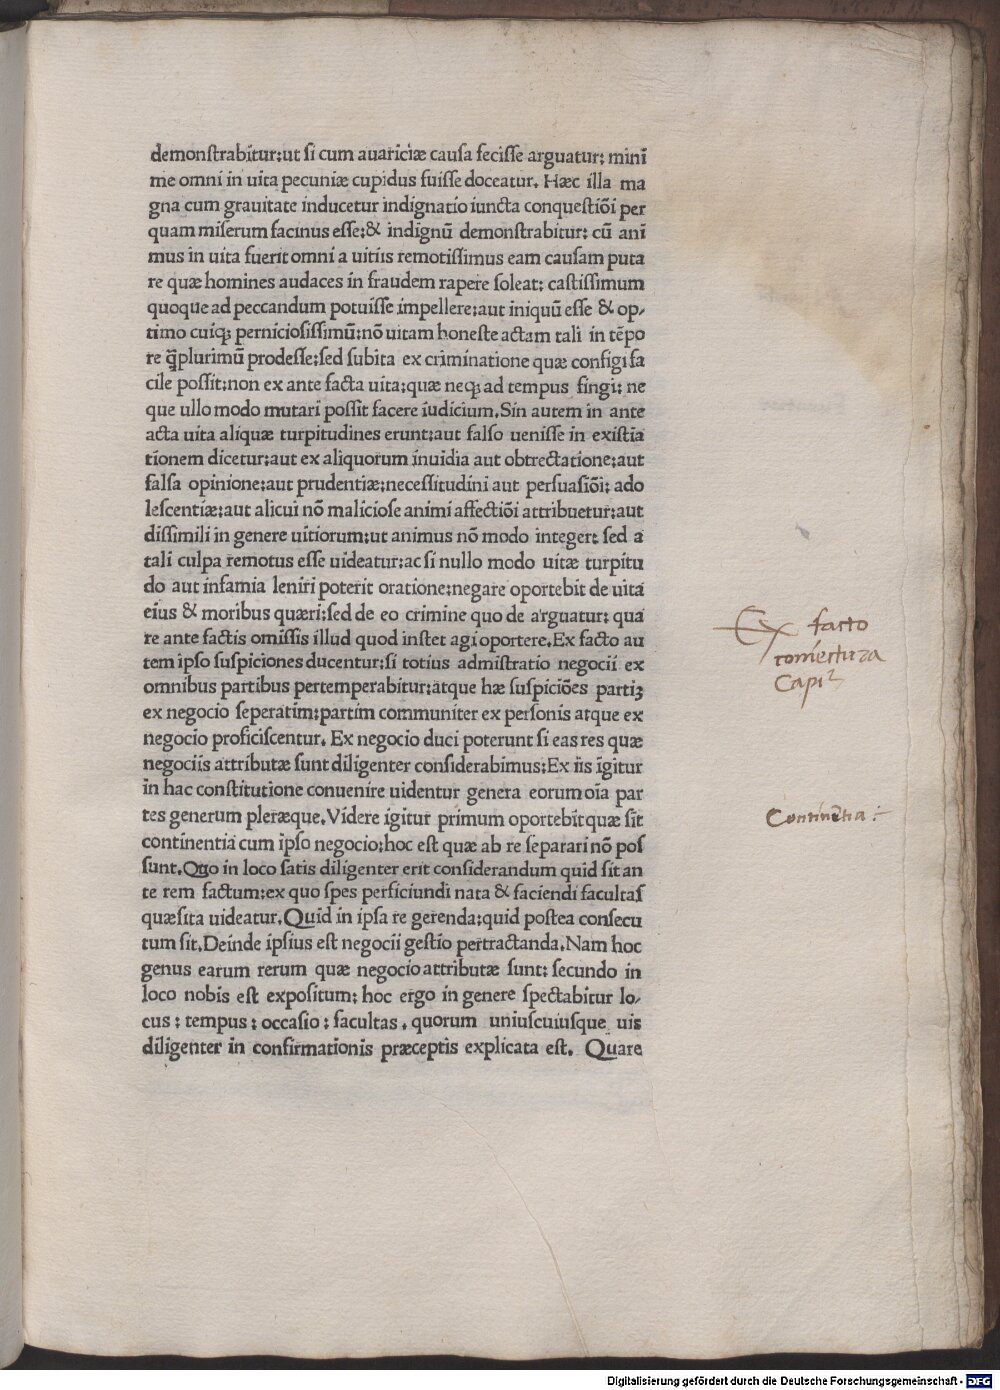 demonſtrabitur:ut ſi cum auariciæ cauſa feciſſe arguatur: mini
me omni in uita pecuniæ cupidus fuiſſe doceatur. Hæc illa ma
gna cum grauitate inducetur indignatio iuncta conqueſtiõi per
quam miſerum facinus eſſe:& indignũ demonſtrabitur: cũ ani
mus in uita fuerit omni a uitiis remotiſſimus eam cauſam puta
re quæ homines audaces in fraudem rapere ſoleat: caſtiſſimum
quoque ad peccandum potuiſſe impellere:aut iniquũ eſſe & op/
timo cuiq; pernicioſiſſimũ:nõ uitam honeſte actam tali in tẽpo
re q̃plurimũ prodeſſe:ſed ſubita ex criminatione quæ configi fa
cile poſſit:non ex ante facta uita:quæ neq; ad tempus fingi: ne
que ullo modo mutari poſſit facere iudicium.Sin autem in ante
acta uita aliquæ turpitudines erunt:aut falſo ueniſſe in exiſtia
tionem dicetur:aut ex aliquorum inuidia aut obtrectatione:aut
falſa opinione:aut prudentiæ:neceſſitudini aut perſuaſiõi: ado
leſcentiæ:aut alicui nõ malicioſe animi affectiõi attribuetur:aut
diſſimili in genere uitiorum:ut animus nõ modo integer: ſed a
tali culpa remotus eſſe uideatur:ac ſi nullo modo uitæ turpitu
do aut infamia leniri poterit oratione:negare oportebit de uita
eius & moribus quæri:ſed de eo crimine quo de arguatur: qua
re ante factis omiſſis illud quod inſtet agi oportere.Ex facto au
tem ipſo ſuſpiciones ducentur:ſi totius admiſtratio negocii ex
omnibus partibus pertemperabitur:atque hæ ſuſpiciões partiꝫ
ex negocio ſeperatim:partim communiter ex perſonis atque ex
negocio proficiſcentur. Ex negocio duci poterunt ſi eas res quæ
negociis attributæ ſunt diligenter conſiderabimus:Ex iis igitur
in hac conſtitutione conuenire uidentur genera eorum oia par
tes generum pleræque.Videre igitur primum oportebit quæ ſit
continentia cum ipſo negocio:hoc eſt quæ ab re ſeparari nõ poſ
ſunt.Quo in loco ſatis diligenter erit conſiderandum quid ſit an
te rem factum:ex quo ſpes perficiundi nata & faciendi facultaſ
quæſita uideatur.Quid in ipſa re gerenda:quid poſtea conſecu
tum ſit.Deinde ipſius eſt negocii geſtio pertractanda.Nam hoc
genus earum rerum quæ negocio attributæ ſunt: ſecundo in
loco nobis eſt expoſitum: hoc ergo in genere ſpectabitur lo/
cus : tempus : occaſio : facultas . quorum uniuſcuiuſque uis
diligenter in confirmationis præceptis explicata eſt. Quare
Ex facto
coniectura
Capi
Continẽtia :
Digitalisierung gefördert durch die Deutsche Forschungsgemeinschaft - DFG